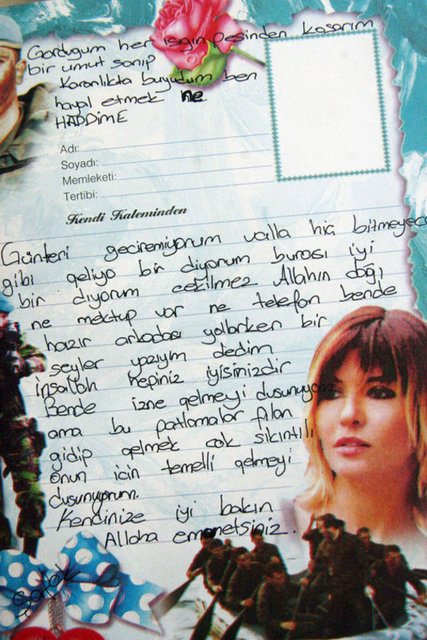 Gördügüm her ışığın peşinden koşarım
bir umut sanıp
Karanlıkta büyüdüm ben
hayal etmek ne
HADDiME
Adı:
Soyadı:
Memleketi:
Tertibi:
Kendi Kaleminden
Günleri geciremiyorum valla hiç bitmeyecek
gibi geliyo bir diyorum burası iyi
bir diyorum cekilmez Allahın dağı
ne mektup var ne telefon bende
hazır arkadaşı yollarken bir
şeyler yazıyım dedim
inşallah hepiniz iyisinizdir
Bende izne gelmeyi düşünüyorum
ama bu patlamalar filan
gidip gelmek çok sıkıntılı
onun icin temelli gelmeyi
düşünüyorum.
Kendinize iyi bakın
Allaha emanetsiniz.
şafak